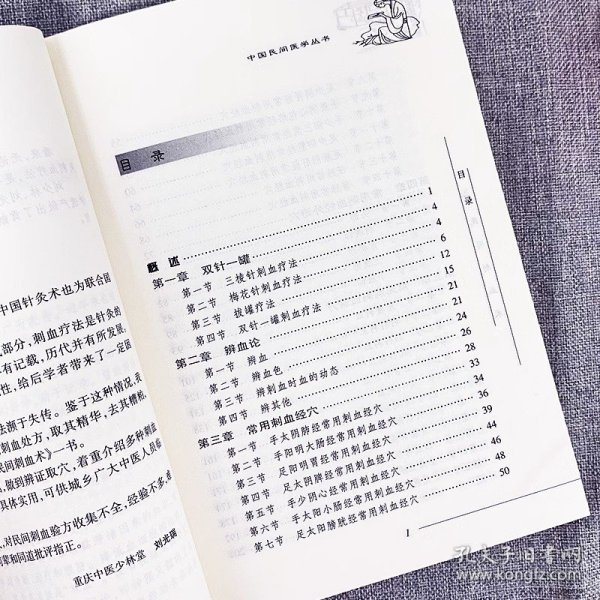 中国针灸术也为联合国
部分，刺血疗法是针灸的
有记载，历代并有所发展。
性，给后学者带来了一定困
法濒于失传。鉴于这种情况，我
刺血处方，取其精华，去其糟粕，
民间刺血术》一书。
做到辨证取穴，着重介绍多种刺血
具体实用，可供城乡广大中医人员
对民间刺血验方收集不全，经验不多，
者和同道批评指正。
重庆中医少林堂 刘光瑞
中国民间医学丛书
目 录
目录
概述 1
第一章 双针一罐 4
第一节 三棱针刺血疗法 4
第二节 梅花针刺血疗法 6
第三节 拔罐疗法 12
第四节 双针一罐刺血疗法 15
第二章 辨血论 21
第一节 辨血 21
第二节 辨血色 24
第三节 辨刺血时血的动态 26
第四节 辨其他 28
第三章 常用刺血经穴 33
第一节 手太阴肺经常用刺血经穴 34
第二节 手阳明大肠经常用刺血经穴 36
第三节 足阳明胃经常用刺血经穴 39
第四节 足太阴脾经常用刺血经穴 44
第五节 手少阴心经常用刺血经穴 46
第六节 手太阳小肠经常用刺血经穴 48
第七节 足太阳膀胱经常用刺血经穴 50
1
孔夫子旧书网
www.kongfz.com